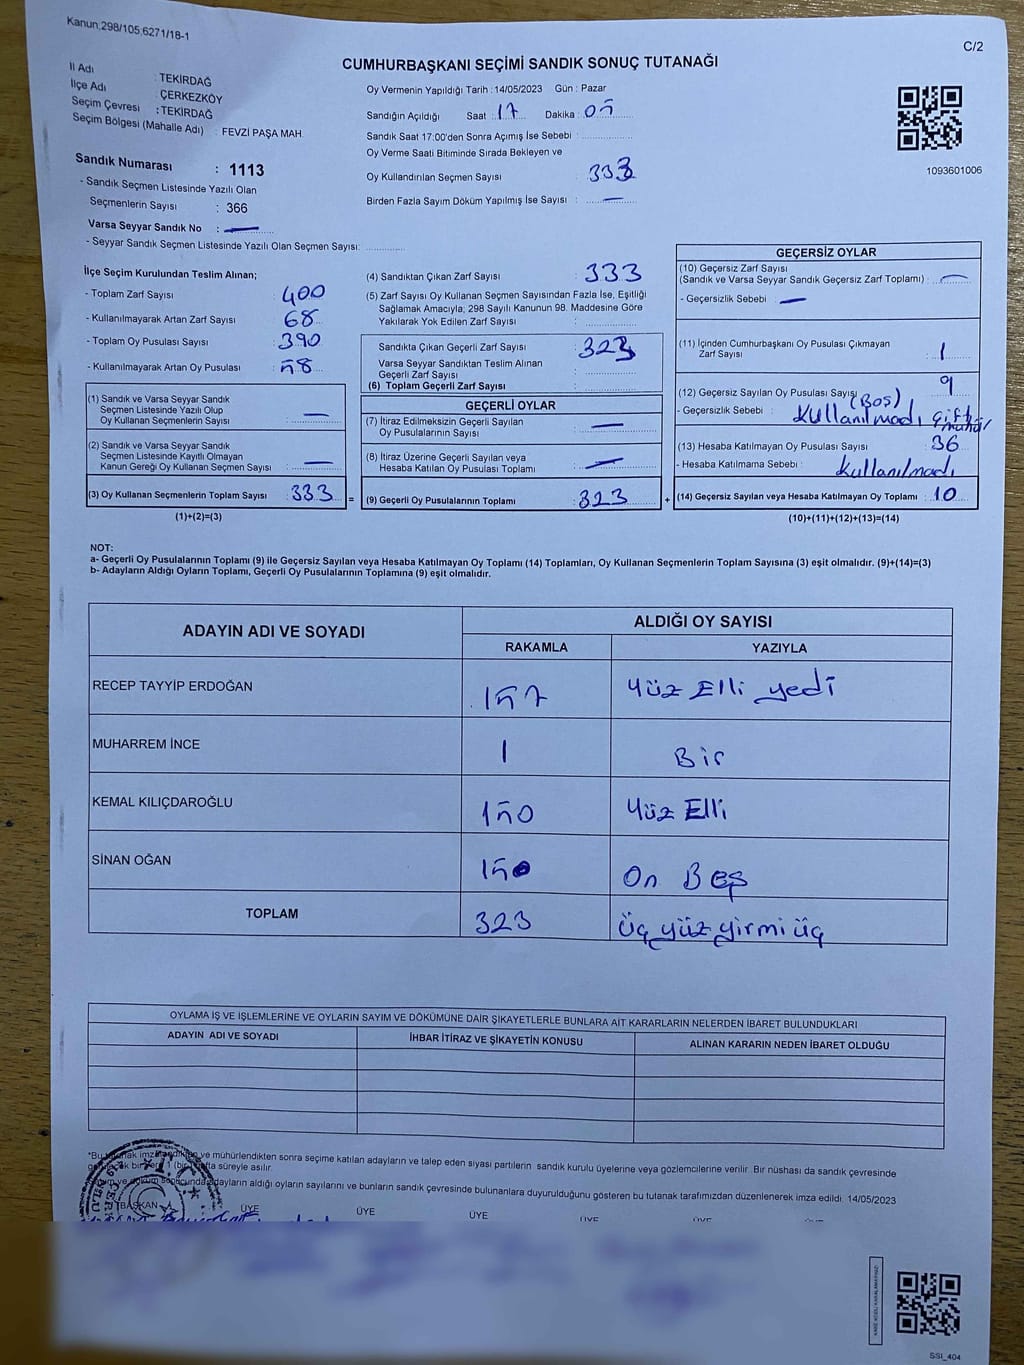 Kanun;298/105;6271/18-1
C/2
CUMHURBAŞKANI SEÇİMİ SANDIK SONUÇ TUTANAĞI
İl Adı : TEKİRDAĞ
İlçe Adı : ÇERKEZKÖY
Seçim Çevresi : TEKİRDAĞ
Seçim Bölgesi (Mahalle Adı) : FEVZİ PAŞA MAH.
Sandık Numarası : 1113
- Sandık Seçmen Listesinde Yazılı Olan
Seçmenlerin Sayısı : 366
Varsa Seyyar Sandık No : —
- Seyyar Sandık Seçmen Listesinde Yazılı Olan Seçmen Sayısı:
Oy Vermenin Yapıldığı Tarih : 14/05/2023 Gün : Pazar
Sandığın Açıldığı Saat : 17 Dakika : 05
Sandık Saat 17:00'den Sonra Açımış İse Sebebi :
Oy Verme Saati Bitiminde Sırada Bekleyen ve
Oy Kullandırılan Seçmen Sayısı : 333
Birden Fazla Sayım Döküm Yapılmış İse Sayısı : —
1093601006
İlçe Seçim Kurulundan Teslim Alınan;
- Toplam Zarf Sayısı : 400
- Kullanılmayarak Artan Zarf Sayısı : 68
- Toplam Oy Pusulası Sayısı : 390
- Kullanılmayarak Artan Oy Pusulası : 58
(1) Sandık ve Varsa Seyyar Sandık
Seçmen Listesinde Yazılı Olup
Oy Kullanan Seçmenlerin Sayısı : —
(2) Sandık ve Varsa Seyyar Sandık
Seçmen Listesinde Kayıtlı Olmayan
Kanun Gereği Oy Kullanan Seçmen Sayısı : —
(3) Oy Kullanan Seçmenlerin Toplam Sayısı : 333 =
(1)+(2)=(3)
(4) Sandıktan Çıkan Zarf Sayısı : 333
(5) Zarf Sayısı Oy Kullanan Seçmen Sayısından Fazla İse, Eşitliği
Sağlamak Amacıyla; 298 Sayılı Kanunun 98. Maddesine Göre
Yakılarak Yok Edilen Zarf Sayısı :
Sandıkta Çıkan Geçerli Zarf Sayısı : 323
Varsa Seyyar Sandıktan Teslim Alınan
Geçerli Zarf Sayısı :
(6) Toplam Geçerli Zarf Sayısı :
GEÇERLİ OYLAR
(7) İtiraz Edilmeksizin Geçerli Sayılan
Oy Pusulalarının Sayısı : —
(8) İtiraz Üzerine Geçerli Sayılan veya
Hesaba Katılan Oy Pusulası Toplamı : —
(9) Geçerli Oy Pusulalarının Toplamı : 323 +
GEÇERSİZ OYLAR
(10) Geçersiz Zarf Sayısı
(Sandık ve Varsa Seyyar Sandık Geçersiz Zarf Toplamı) : —
- Geçersizlik Sebebi : —
(11) İçinden Cumhurbaşkanı Oy Pusulası Çıkmayan
Zarf Sayısı : 1
(12) Geçersiz Sayılan Oy Pusulası Sayısı : 9
- Geçersizlik Sebebi : (Boş) Kullanılmadı çift mühür
(13) Hesaba Katılmayan Oy Pusulası Sayısı : 36
- Hesaba Katılmama Sebebi : Kullanılmadı
(14) Geçersiz Sayılan veya Hesaba Katılmayan Oy Toplamı : 10
(10)+(11)+(12)+(13)=(14)
NOT:
a- Geçerli Oy Pusulalarının Toplamı (9) ile Geçersiz Sayılan veya Hesaba Katılmayan Oy Toplamı (14) Toplamları, Oy Kullanan Seçmenlerin Toplam Sayısına (3) eşit olmalıdır. (9)+(14)=(3)
b- Adayların Aldığı Oyların Toplamı, Geçerli Oy Pusulalarının Toplamına (9) eşit olmalıdır.
ADAYIN ADI VE SOYADI ALDIĞI OY SAYISI
RAKAMLA YAZIYLA
RECEP TAYYİP ERDOĞAN 157 Yüz Elli yedi
MUHARREM İNCE 1 Bir
KEMAL KILIÇDAROĞLU 150 Yüz Elli
SİNAN OĞAN 15 On Beş
TOPLAM 323 Üç yüz yirmi üç
OYLAMA İŞ VE İŞLEMLERİNE VE OYLARIN SAYIM VE DÖKÜMÜNE DAİR ŞİKAYETLERLE BUNLARA AİT KARARLARIN NELERDEN İBARET BULUNDUKLARI
ADAYIN ADI VE SOYADI İHBAR İTİRAZ VE ŞİKAYETİN KONUSU ALINAN KARARIN NEDEN İBARET OLDUĞU
ve mühürlendikten sonra seçime katılan adayların ve talep eden siyasi partilerin sandık kurulu üyelerine veya gözlemcilerine verilir. Bir nüshası da sandık çevresinde
süreyle asılır.
adayların aldığı oyların sayılarını ve bunların sandık çevresinde bulunanlara duyurulduğunu gösteren bu tutanak tarafımızdan düzenlenerek imza edildi. 14/05/2023
BAŞKAN ÜYE ÜYE ÜYE ÜYE ÜYE
SSI_404